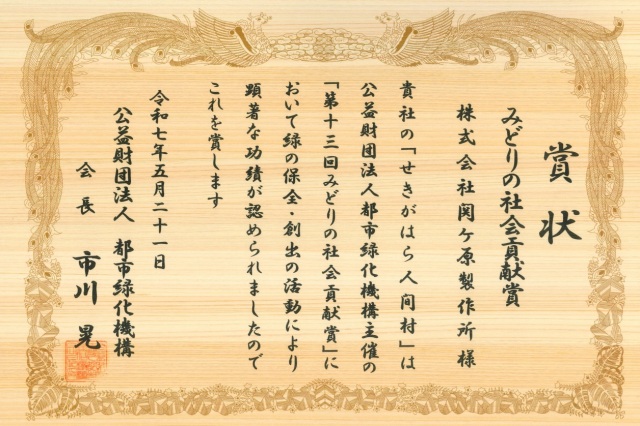 賞状
みどりの社会貢献賞
株式会社関ケ原製作所様
貴社の「せきがはら人間村」は
公益財団法人都市緑化機構主催の
「第十三回みどりの社会貢献賞」に
おいて緑の保全・創出の活動により
顕著な功績が認められましたので
これを賞します
令和七年五月二十一日
公益財団法人 都市緑化機構
会長 市川晃